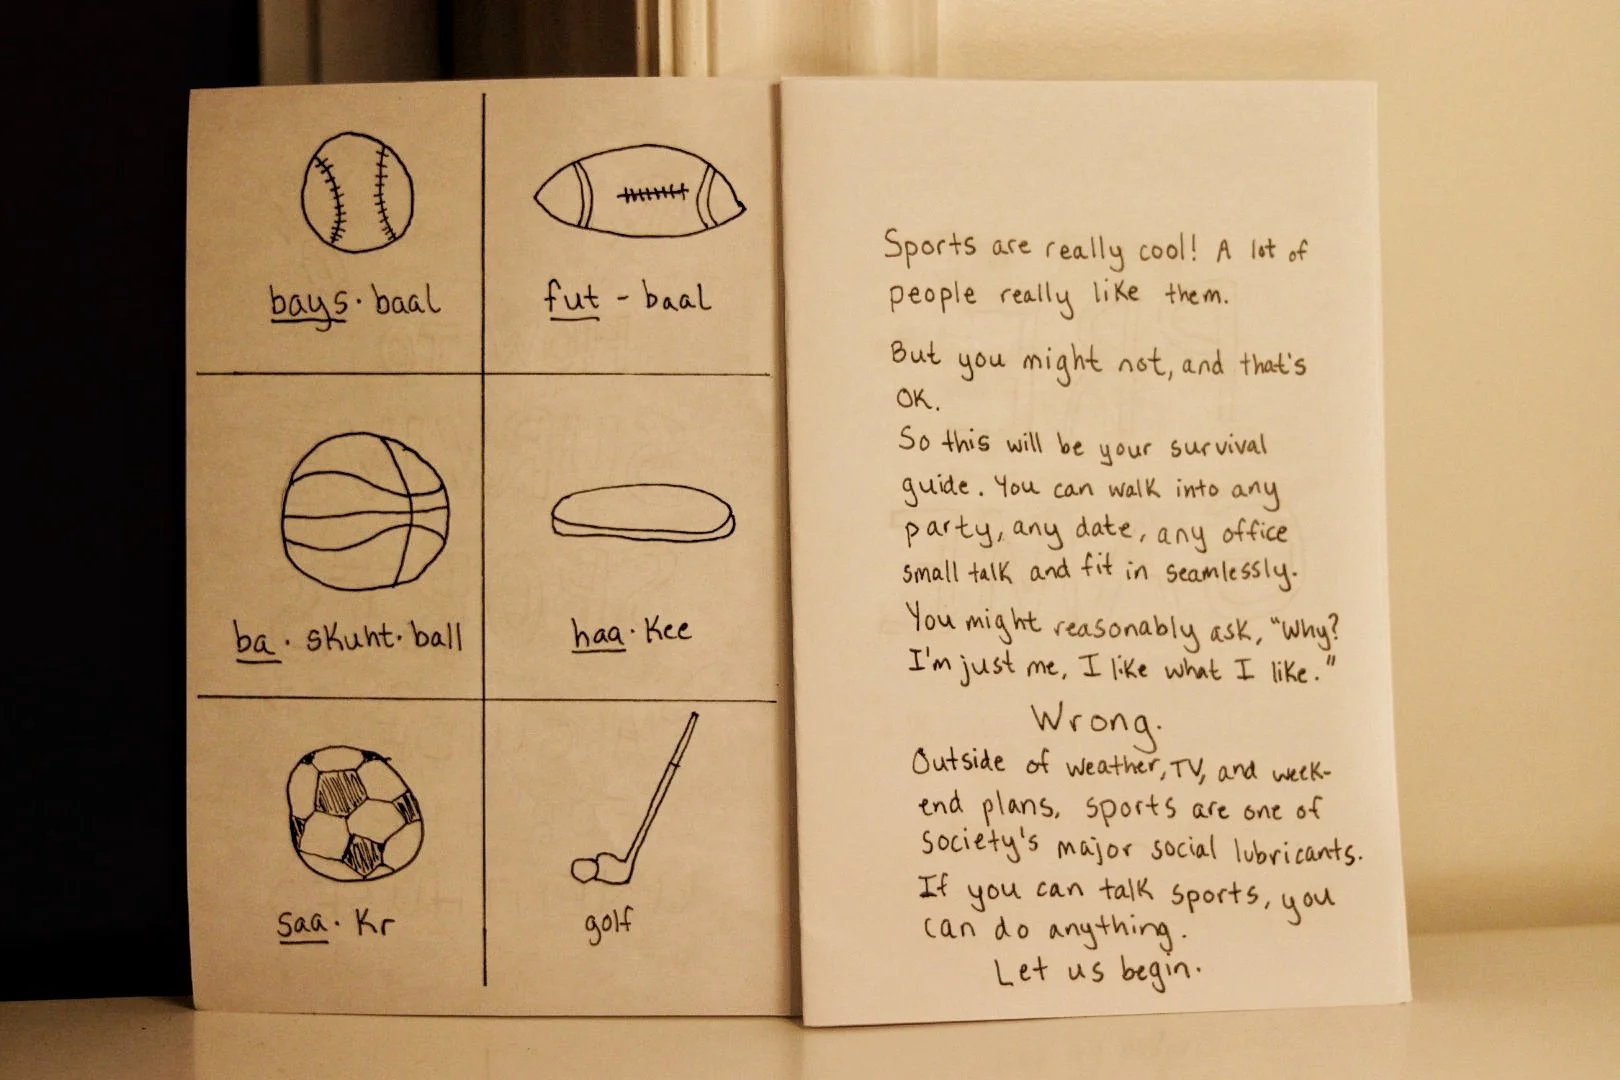 bays·baal
fut - baal
ba·skuht·ball
haa·kee
saa·kr
golf
Sports are really cool! A lot of
people really like them.
But you might not, and that's
OK.
So this will be your survival
guide. You can walk into any
party, any date, any office
small talk and fit in seamlessly.
You might reasonably ask, "Why?
I'm just me, I like what I like."
Wrong.
Outside of weather, TV, and week-
end plans, sports are one of
society's major social lubricants.
If you can talk sports, you
can do anything.
Let us begin.